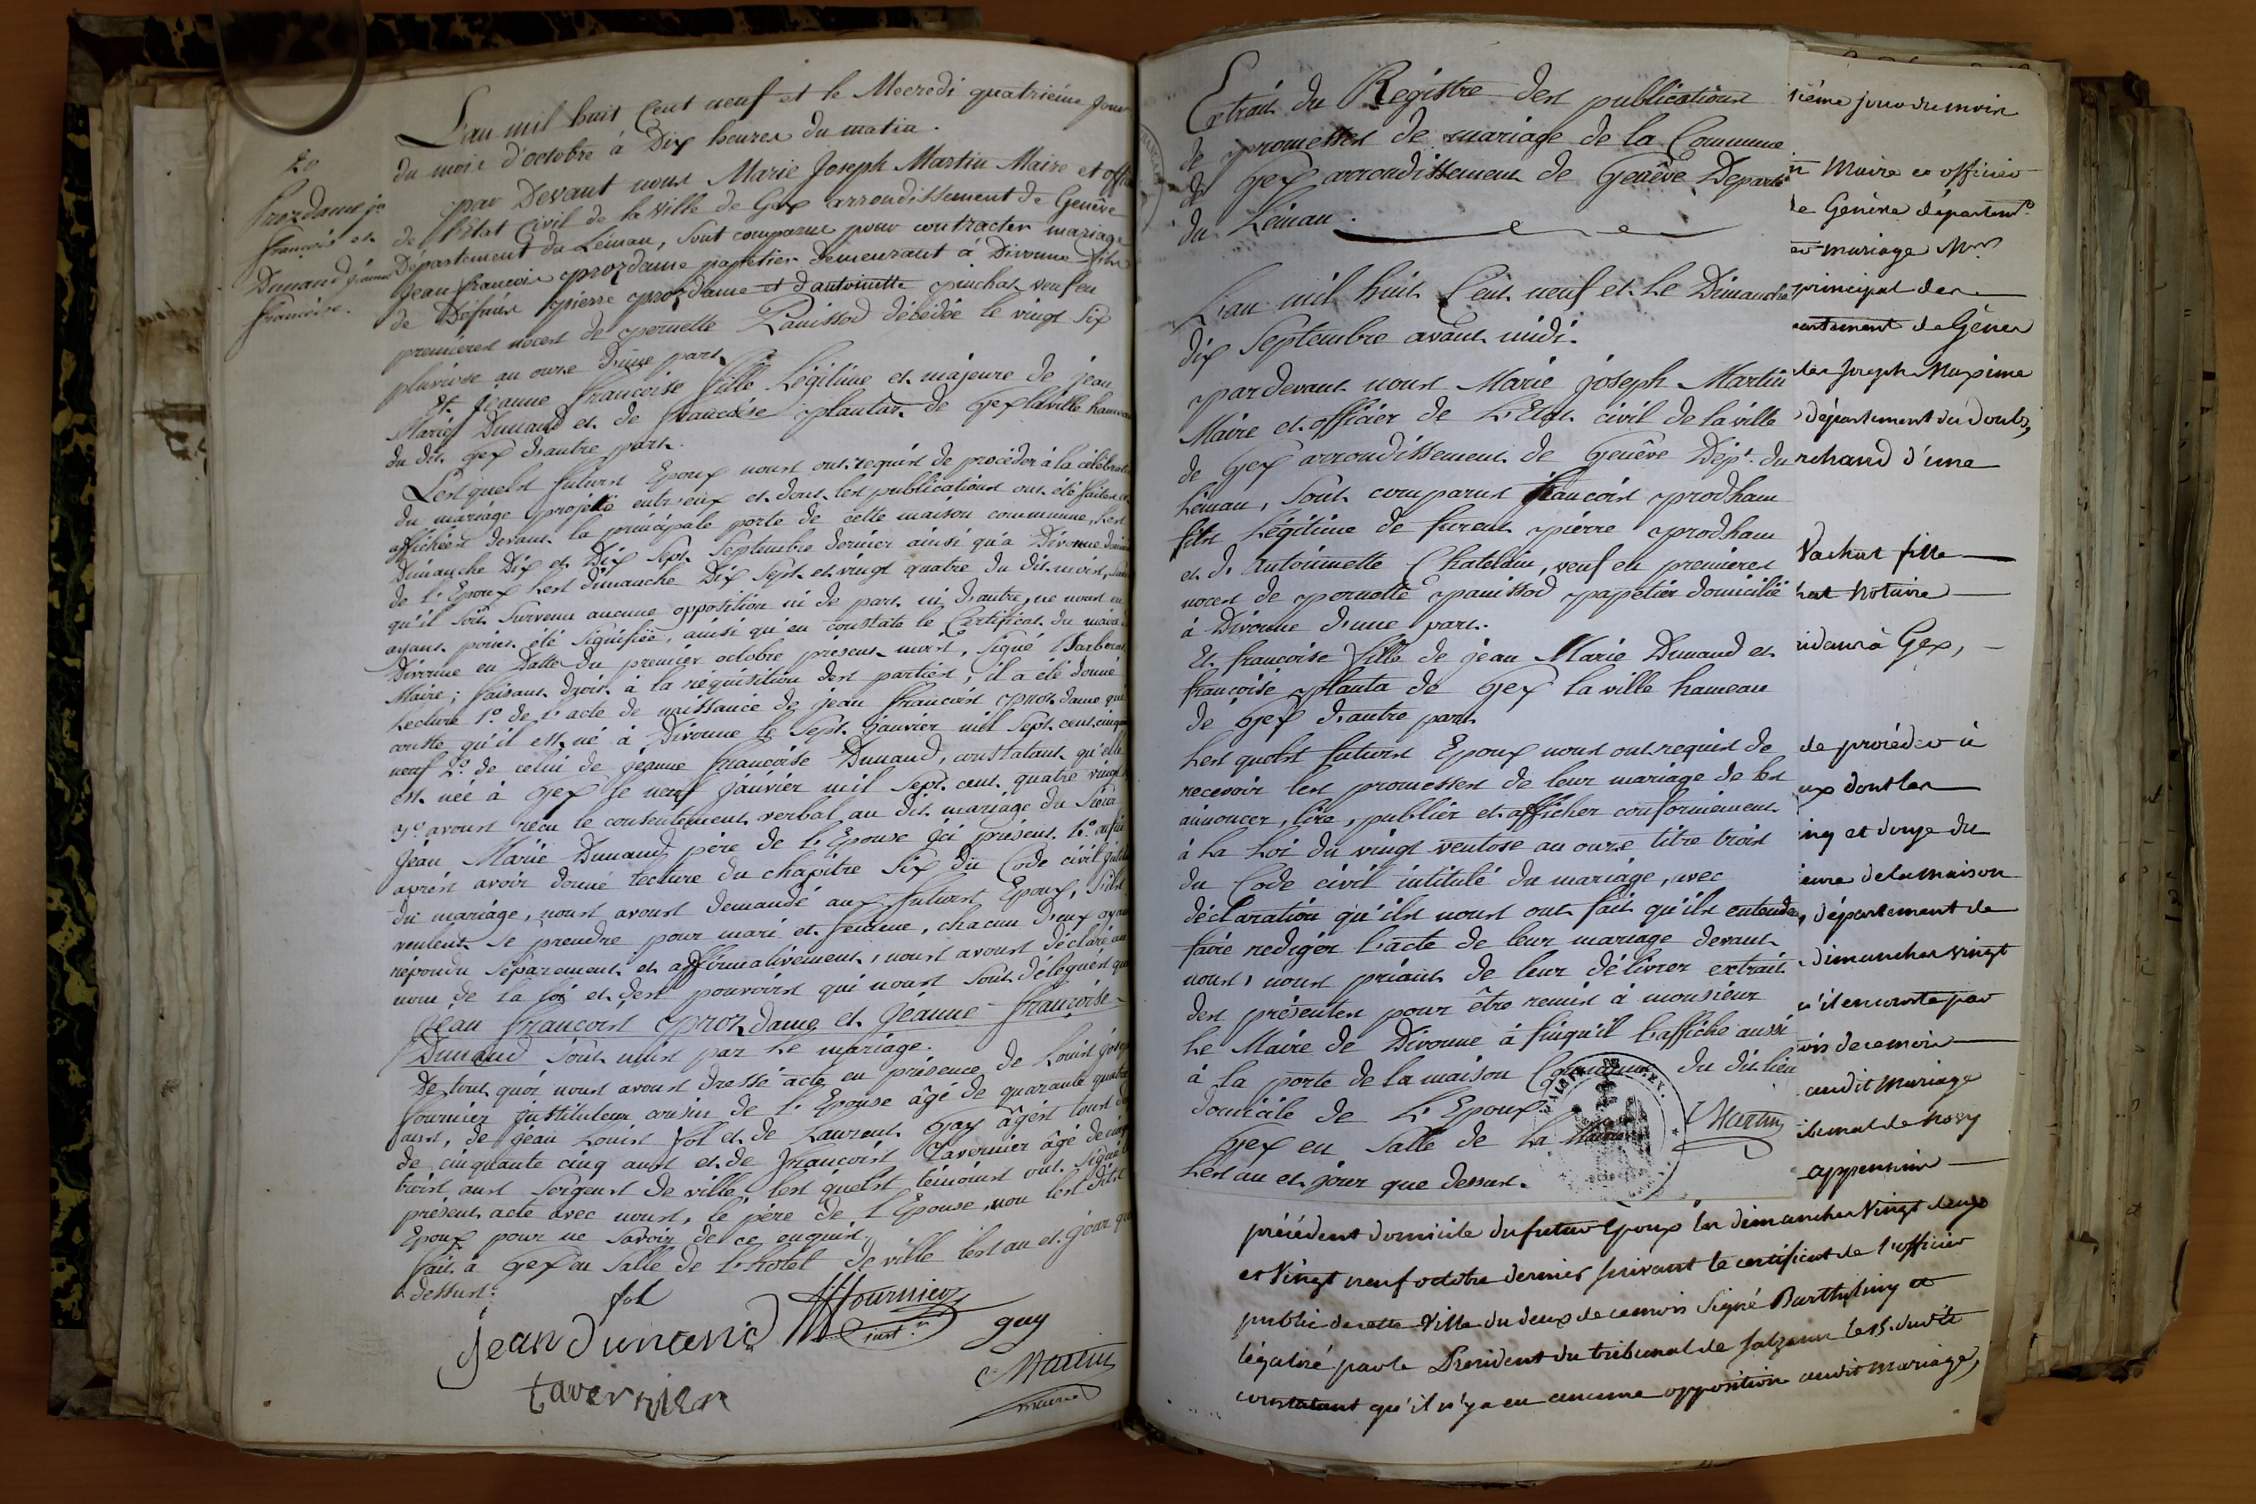 L'an mil huit Cent neuf et le Mecredi quatrieme jour
du mois d'octobre à Dix heures du matin.
par Devant nous Marie Joseph Martin Maire et offi
de l'Etat Civil de la Ville de Gex arrondissement de Genêve
Département du Léman, Sont comparus pour contracter mariage
Jean francois prozdame papetier demeurant à Divonne fils
de Défunt pierre prozdame et d'antoinette pruchat veuf en
premieres noces de pernette Panissod décédée le vingt Six
pluviose an onze d'une part
Et Jeanne françoise fille Légitime et majeure de jean
Marie Dunand et de francoise plantar de Gex laville hameau
du dit Gex d'autre part.
Lesquels futurs Epoux nous ont requis de procéder à la célébrat
du mariage projetté entr'eux et dont les publications ont été faites et
affichées devant la principale porte de cette maison commune, les
Dimanche Dix et Dix Sept Septembre dernier ainsi qu'à Divonne
de l'Epoux les dimanche Dix Sept et vingt quatre du dit mois,
qu'il soit Survenu aucune opposition ni de part ni d'autre, ne nous en
ayant point été Signifiée, ainsi qu'en constate le Certificat du maire
Divonne en Datte du premier octobre présent mois, Signé Barberat
Maire; faisant droit à la réquisition des parties, il a été donné
Lecture 1.° de l'acte de naissance de jean francois prozdame qui
conste qu'il est né à Divonne le Sept janvier mil Sept cent cinqu
neuf 2.° de celui de jeanne francoise Dunand, constatant qu'elle
est née à Gex le neuf janvier mil Sept cent quatre vingt
3.° avons reçu le consentement verbal au dit mariage du Sieur
Jean Marie Dunand père de l'Epouse ici présent 4.° enfin
après avoir donné lecture du chapitre Six du Code civil
du mariage, nous avons demandé aux futurs Epoux, S'ils
veulent Se prendre pour mari et femme, chacun d'eux ayant
répondu Séparement et affirmativement, nous avons déclaré au
nom de la loi et des pouvoirs qui nous Sont délegués que
Jean francois prozdame et Jeanne francoise
Dunand Sont unis par Le mariage.
De tout quoi nous avons dressé acte en présence de Louis joseph
fournier instituteur cousin de l'Epouse âgé de quarante quatre
ans, de jean Louis fol et de Laurent Gay âgés tous deux
de cinquante cinq ans et de francois Tavernier âgé de
trois ans Sergent de ville, les quels témoins ont Signé le
présent acte avec nous, le père de l'Epouse, non les dits
Epoux pour ne Savoir de ce enquis.
fait à Gex en Salle de l'hotel de ville les an et jour que
dessus.
fol
Jean dunand
fournier
inst.
gay
tavernier
Martin
maire
prozdame
françois et
Dunand jeanne
francoise.
Extrait du Régistre des publications
de promesses de mariage de la Commune
de Gex arrondissement de Genêve Départ
du Léman.
L'an mil huit Cent neuf et Le Dimanche
dix Septembre avant midi.
pardevant nous Marie joseph Martin
Maire et officier de L'Etat civil de la ville
de Gex arrondissement de Genêve Dép.t du
Léman, Sont comparus francois prodham
fils Légitime de furent pierre prodham
et d'Antoinette Chatelain, veuf en premieres
noces de pernette panissod papetier domicilié
à Divonne d'une part.
Et francoise fille de jean Marie Dunand et
francoise planta de Gex la ville hameau
de Gex d'autre part
Les quels futurs Epoux nous ont requis de
recevoir les promesses de leur mariage de les
annoncer, lire, publier et afficher conformément
à La Loi du vingt ventose an onze titre trois
du Code civil intitulé du mariage, avec
déclaration qu'ils nous ont fait qu'ils entende
faire rediger L'acte de leur mariage devant
nous, nous priant de leur délivrer extrait
des présentes pour être remis à monsieur
Le Maire de Divonne à fin qu'il l'affiche aussi
à la porte de la maison Commune du dit lieu
domicile de L'Epoux
Gex en Salle de la Mairie
Les an et jour que dessus.
Martin
ième jour du mois
Maire et officier
de Genève départem.t
mariage M.r
principal des
artement de Gènes
Joseph Maxime
département du Doubs,
rchand d'une
Vachat fille
hat Notaire
à Gex,
de procéder à
ux dont les
inq et douze du
eure de la maison
département de
dimanches vingt
qu'il en conste par
de ce mois
audit mariage
ibunal de Novy
appennins
précédent domicile du futur Epoux les dimanches Vingt deux
et Vingt neuf octobre dernier suivant le certificat de l'officier
public de cette Ville du deux de ce mois Signé Barthelmy et
légalisé par le Président du tribunal de le 15. dudit
constatant qu'il n'y a eu aucune opposition audit mariage,